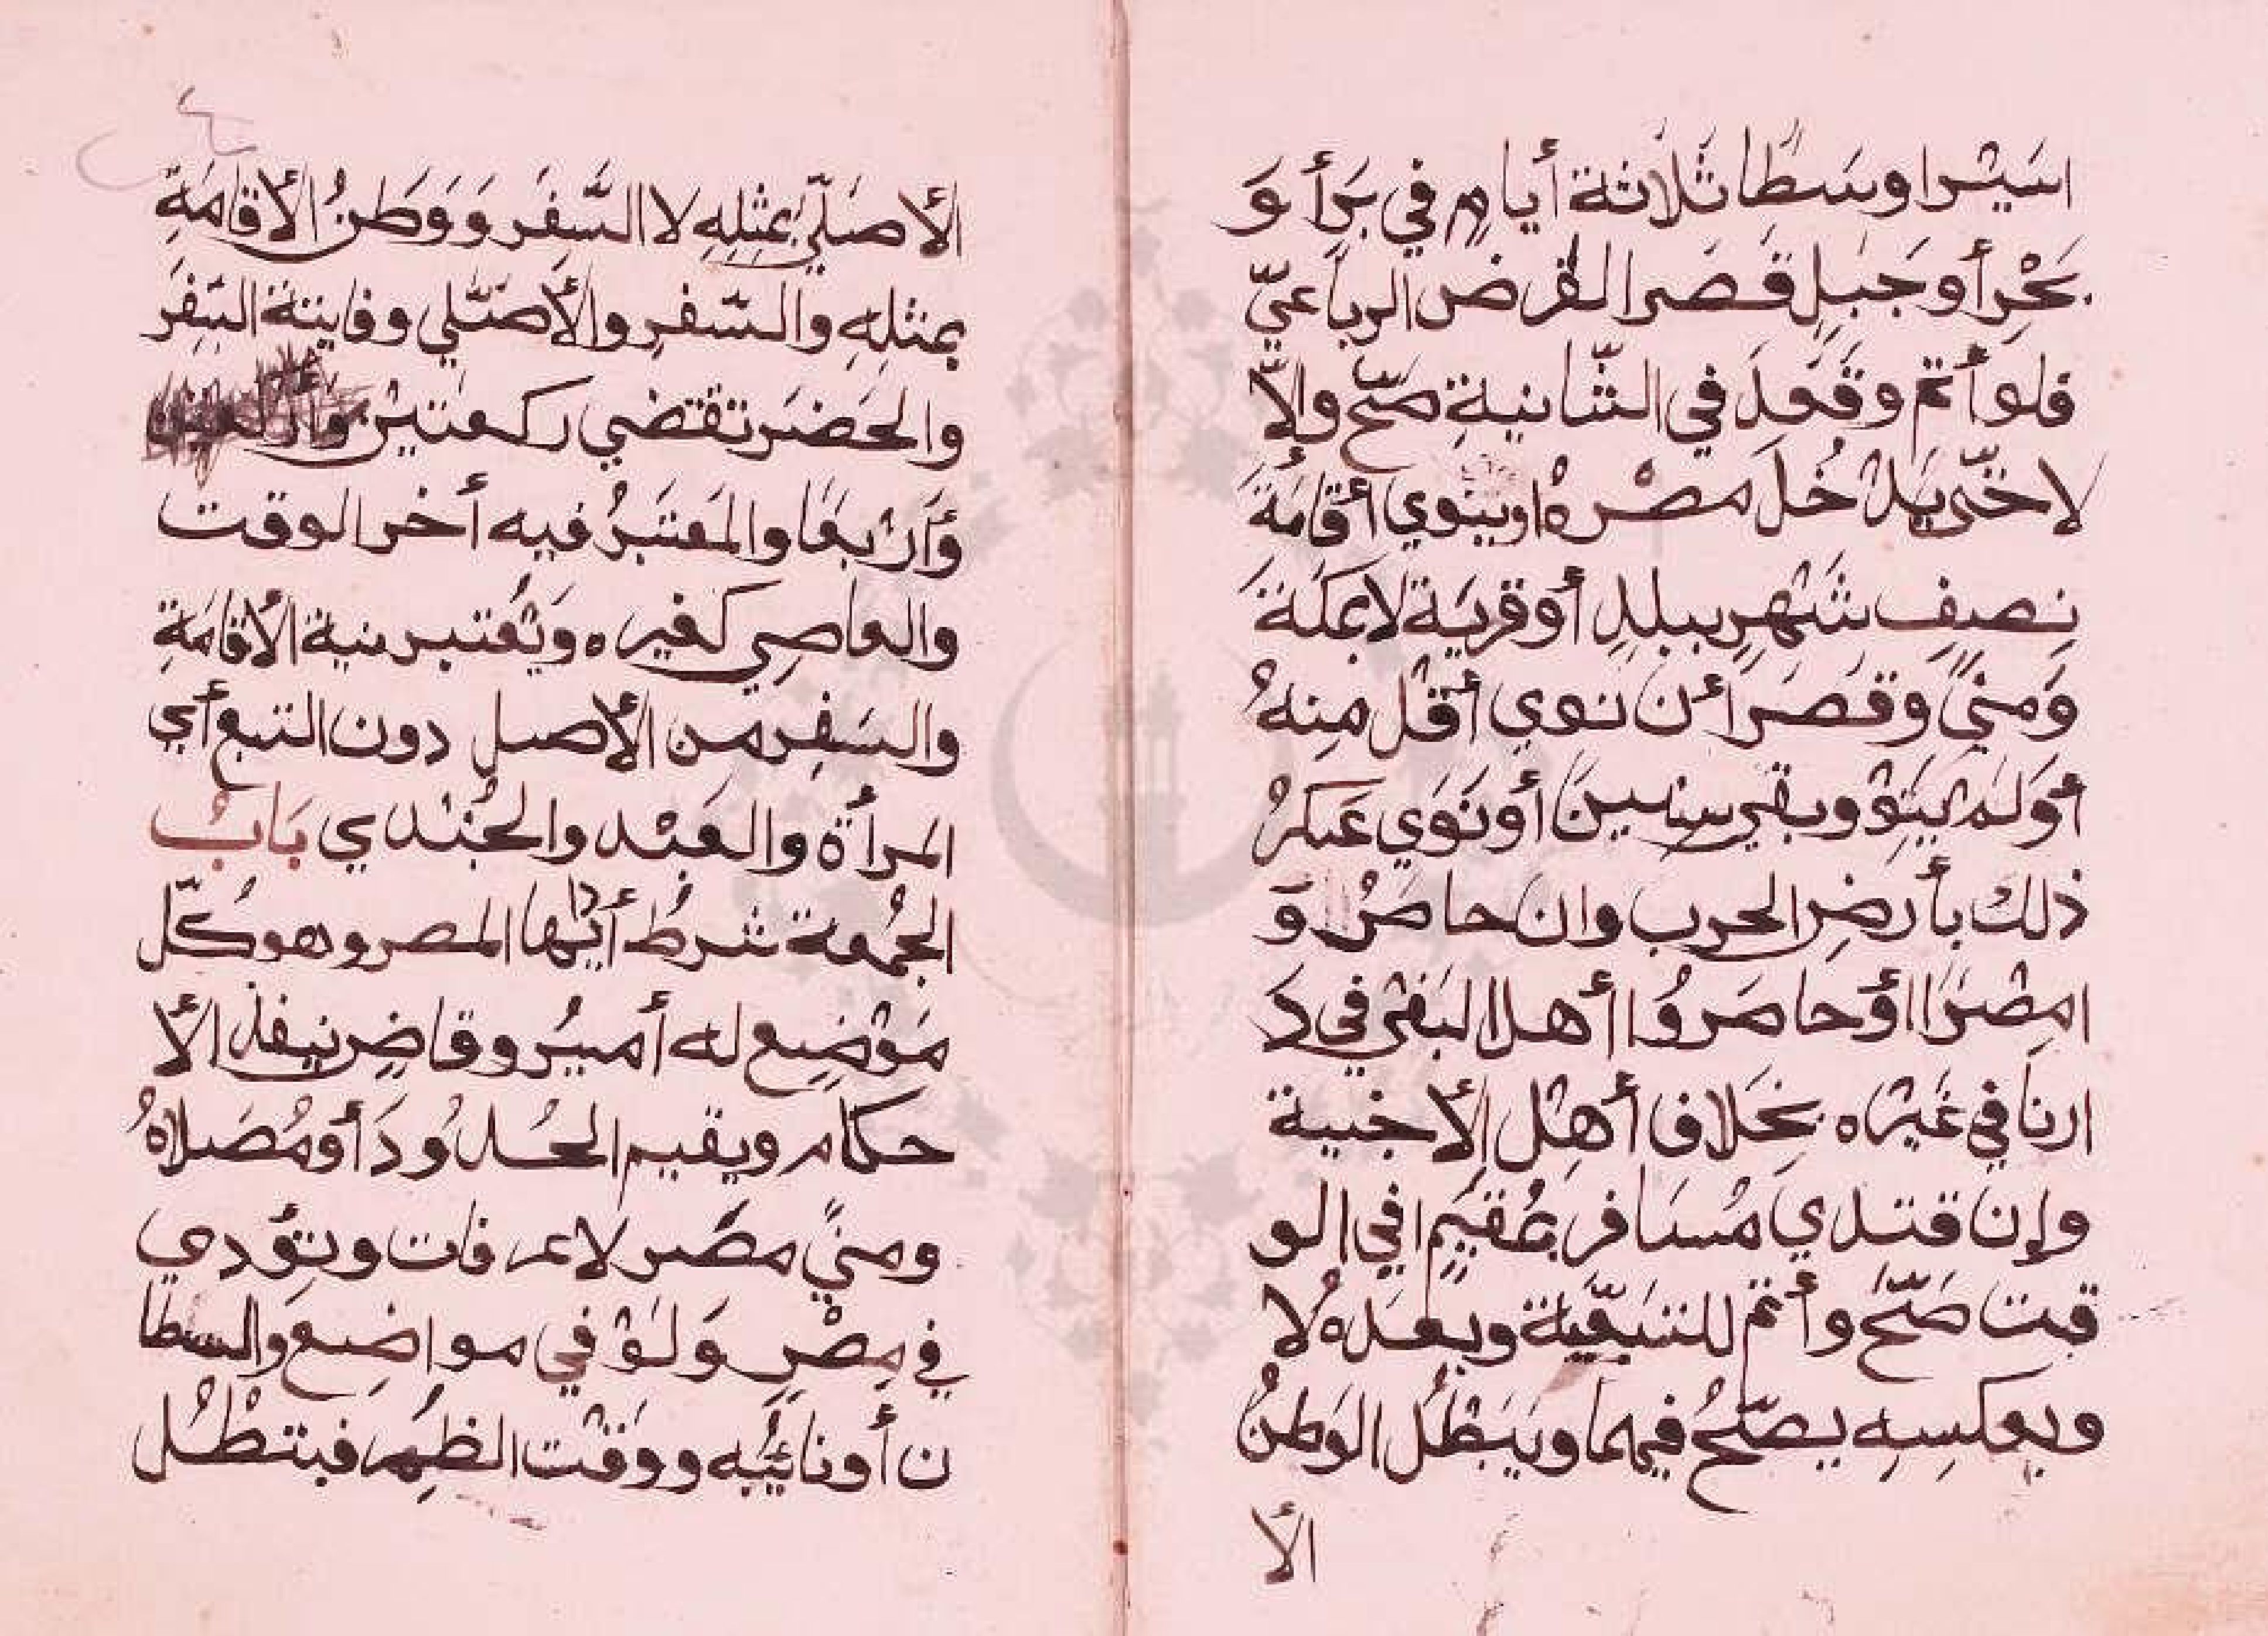 اسَيْرا وسَطًا ثَلَاثة أيامٍ في بَرَأ وَ
بَحْرِ أو جَبَلٍ قَصَر الفَرض الرباعيّ
فلو أتم وقَعَدَ في الثّانيةِ صَحّ والّا
لا حَتّى يَدْخُلَ مصْرهُ اوينوي أقامَةَ
نِصفِ شَهْرٍ ببلدِ أو قريَة لا بمكَةَ
وَمنًي وقصَرَ أن نوي أقل مِنهُ
أوَ لمْ يَنِوْ وبقي سنينَ أو نَوَي عَسكرُ
ذلك بأرضِ الحرب وان حاصرُ وَ
امِصْرًا أوَ حاصَروُا أهل البَغي في دَ
ارنا في غَيْره بخَلاف أهْل الأخبية
وإن قتدي مُسافر بمُقيمٍ في الو
قبت صَحّ وأتم للتبقيَة وبعدهُ لا
وبعكسِهِ يصحّ فيهما ويَبَطْلُ الوَطنُ
الأ
الأصَليّ بمثلِهِ لا السَّفَر وَوَطنُ الأقامَةِ
بمثلِهِ والسّفرِ والأصَلي وفايتة السِفَر
والحَضَر تقضي ركعتين
وَأرْبعَا والمَعتبَرُ فيه أخر الوقت
والعاصِي كغيره وَيُعْتبر نية الأقامَةِ
والسَفِر من الأصل دون التبع أي
المَرأة والعَبْد والجُنْدي بَابُ
الجُمعة شرطُ أدَائها المصر وهو كلّ
مَوْضِع له أميُر وقاضٍ ينفذ الأ
حكام ويقيم الحُدُودَ أو مُصَلاهُ
ومنًي مصَر لا عرفات وتؤدي
في مِصْرٍ وَلوْ في مواضِع والسطا
ن أو نائبُه ووقْت الظهِر فبتطْل